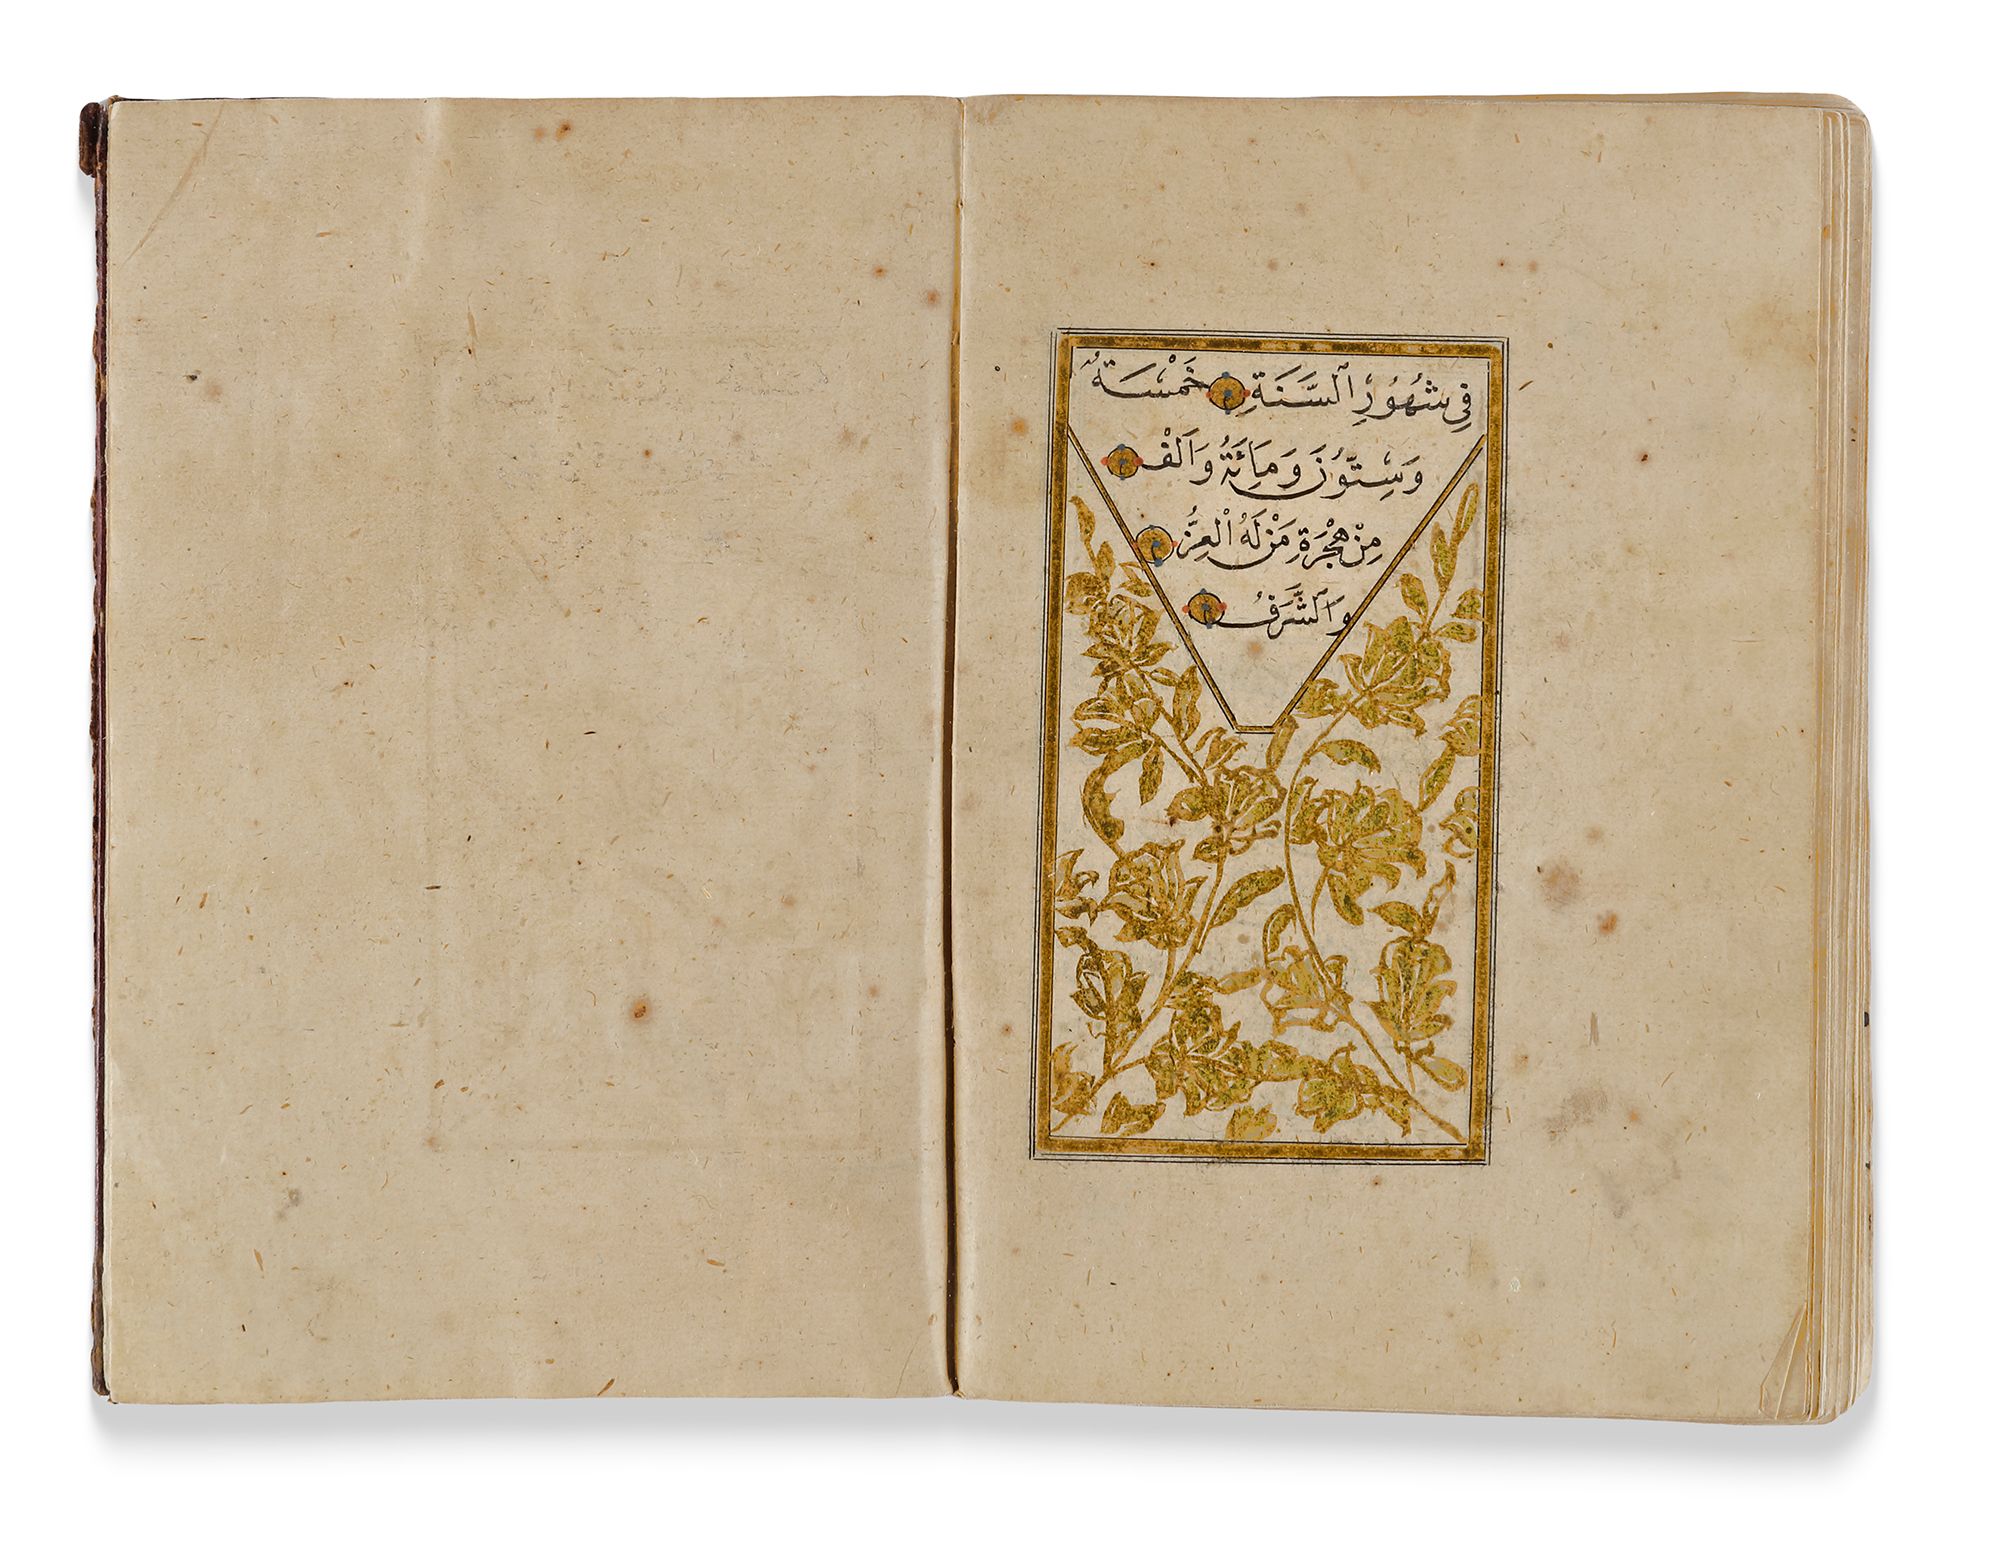 فِي شُهُورِ ٱلسَّنَةِ خَمْسَةٌ
وَسِتُّونَ وَمِائَةُ وَاَلْفْ
مِنْ هِجْرَةِ مَنْ لَهُ الْعِزُّ
وَٱلشَّرَفُ